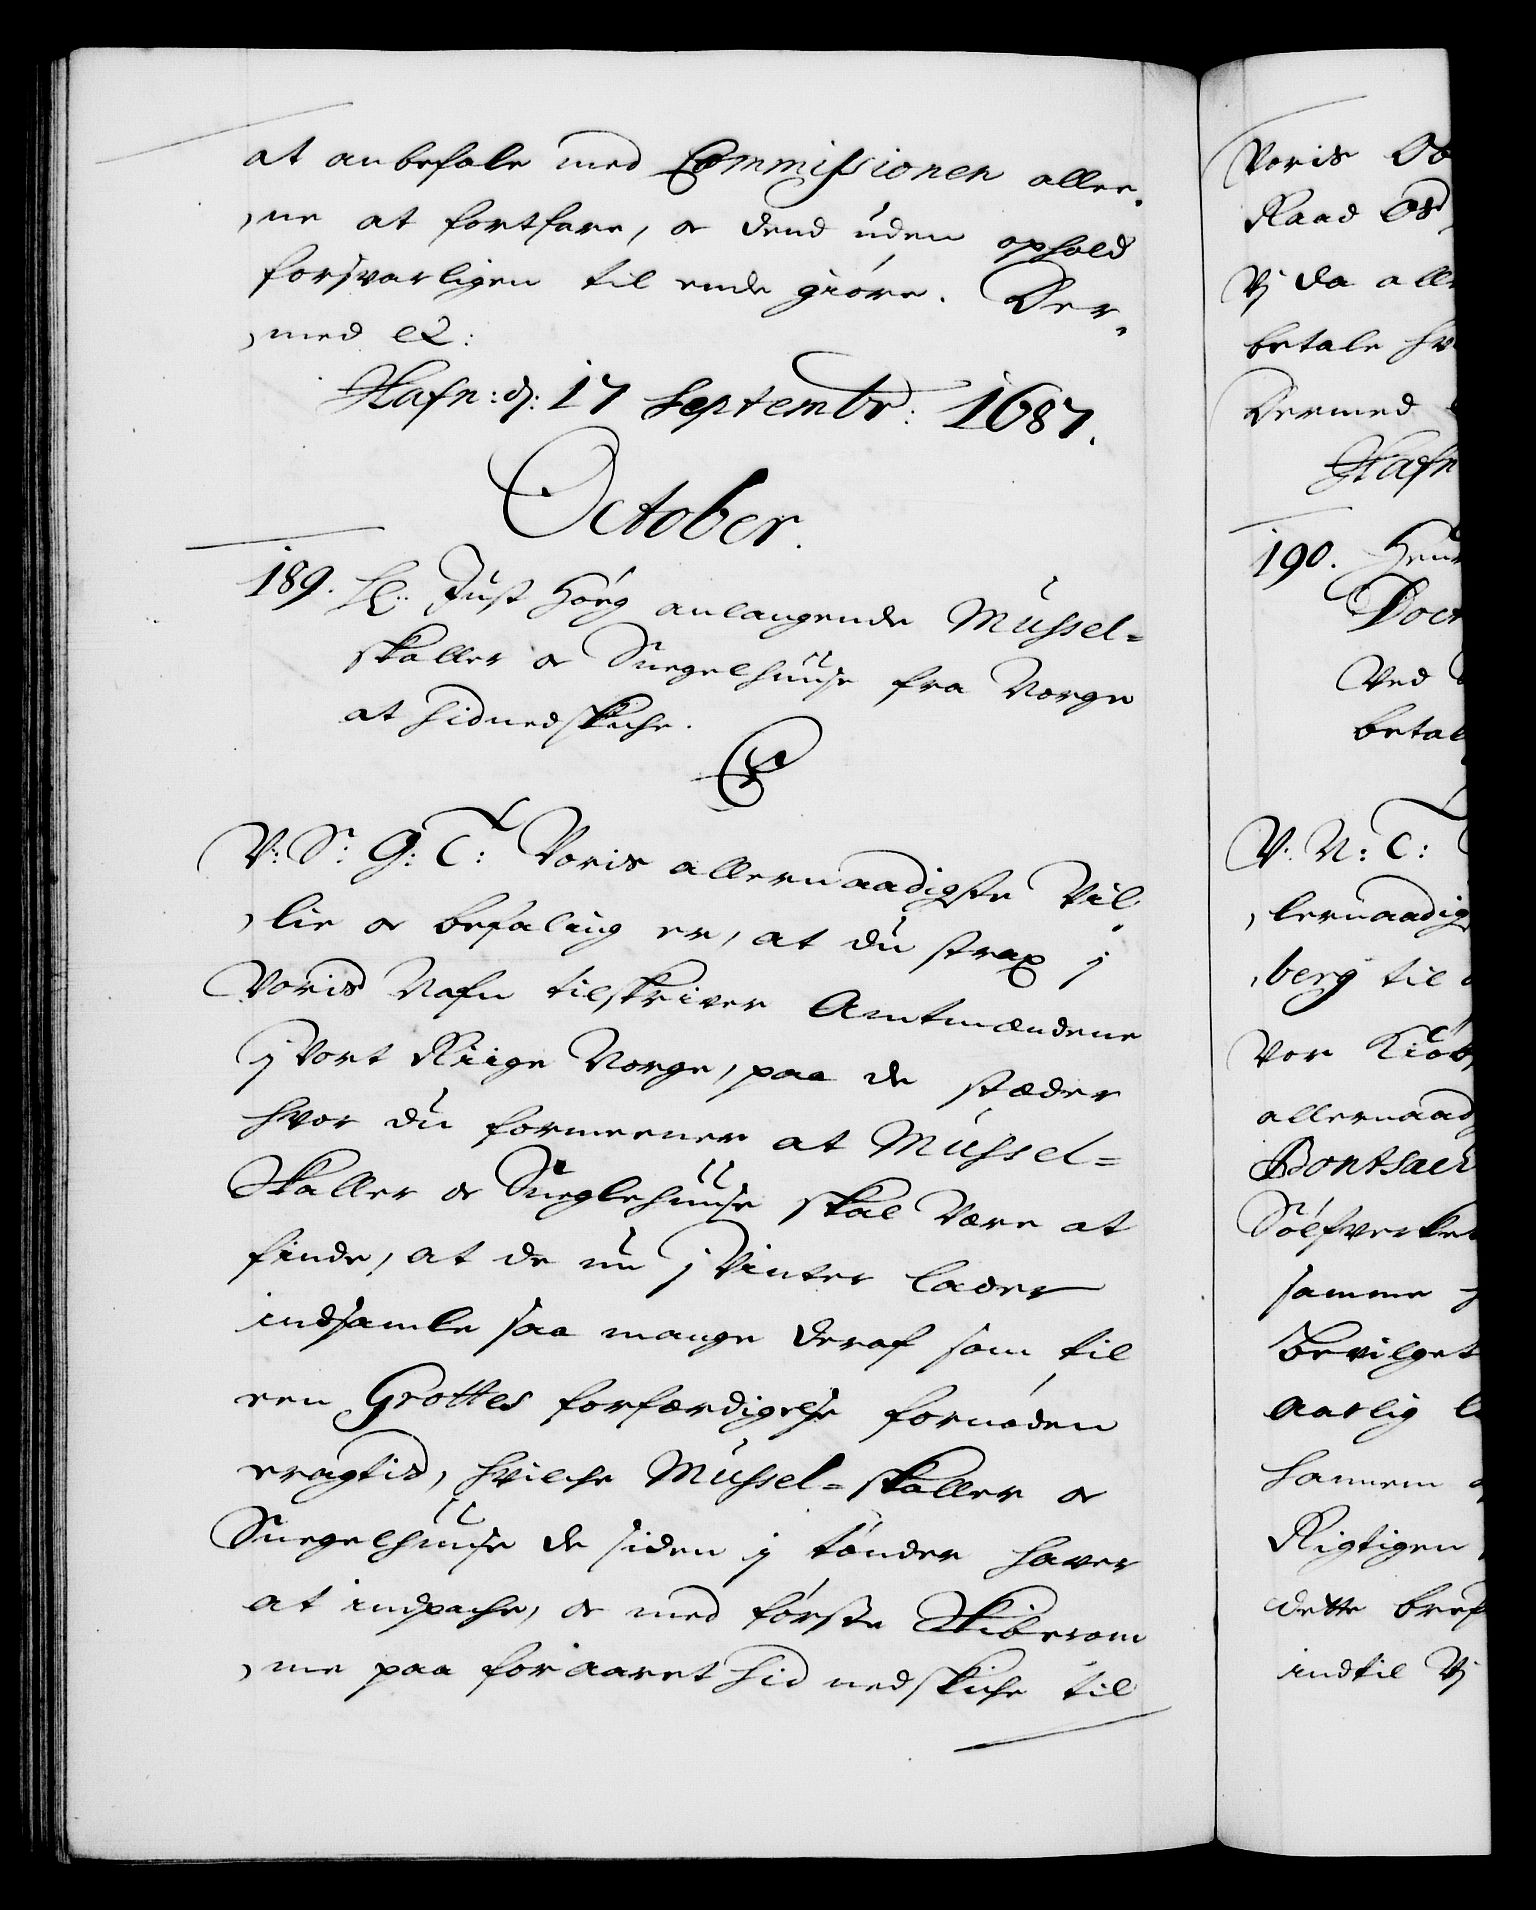 at anbefale med Commissionen allee,,
,ne at fortfare, oc dend uden ophold
forsvarligen til ende giöre. Der,,
,med etc:
Hafn: dj: 17 Septembr: 1687.
October.
189. Hr: Just Höeg anlangende Mussel=
skaller oc Snegelhuuse fra Norge
at hidnedskiche.
C5
V: Sr: G: T: Voris allernaadigste Vil,,
,lie oc befaling er, at du strax j
Voris Nafn tilskriver Amtmændene
j Vort Riige Norge, paa de stæder
hvor du formeener at Mussel=
Skaller oc Sneglehuuse skal være at
finde, at de nu j Vinter lader
indsamle saa mange deraf som til
een Grottes forfærdigelse fornöden
eragtis, hvilche Mussel=skaller oc
Snegelhuuse de siden j tönder haver
at indpache, oc med förste Skiberom
,me paa foraaret hid nedskiche til
Voris
Raad
Vj da all
betale
Dermed
Hafn
190.
Ved
betal
V: N: T:
,lernaadig
,berg til
Vor Kiöb
allernaad
Sölfverke
samme
Bevilget
Aarlig
hannem
Rigtigen
dette bref
indtil Vj